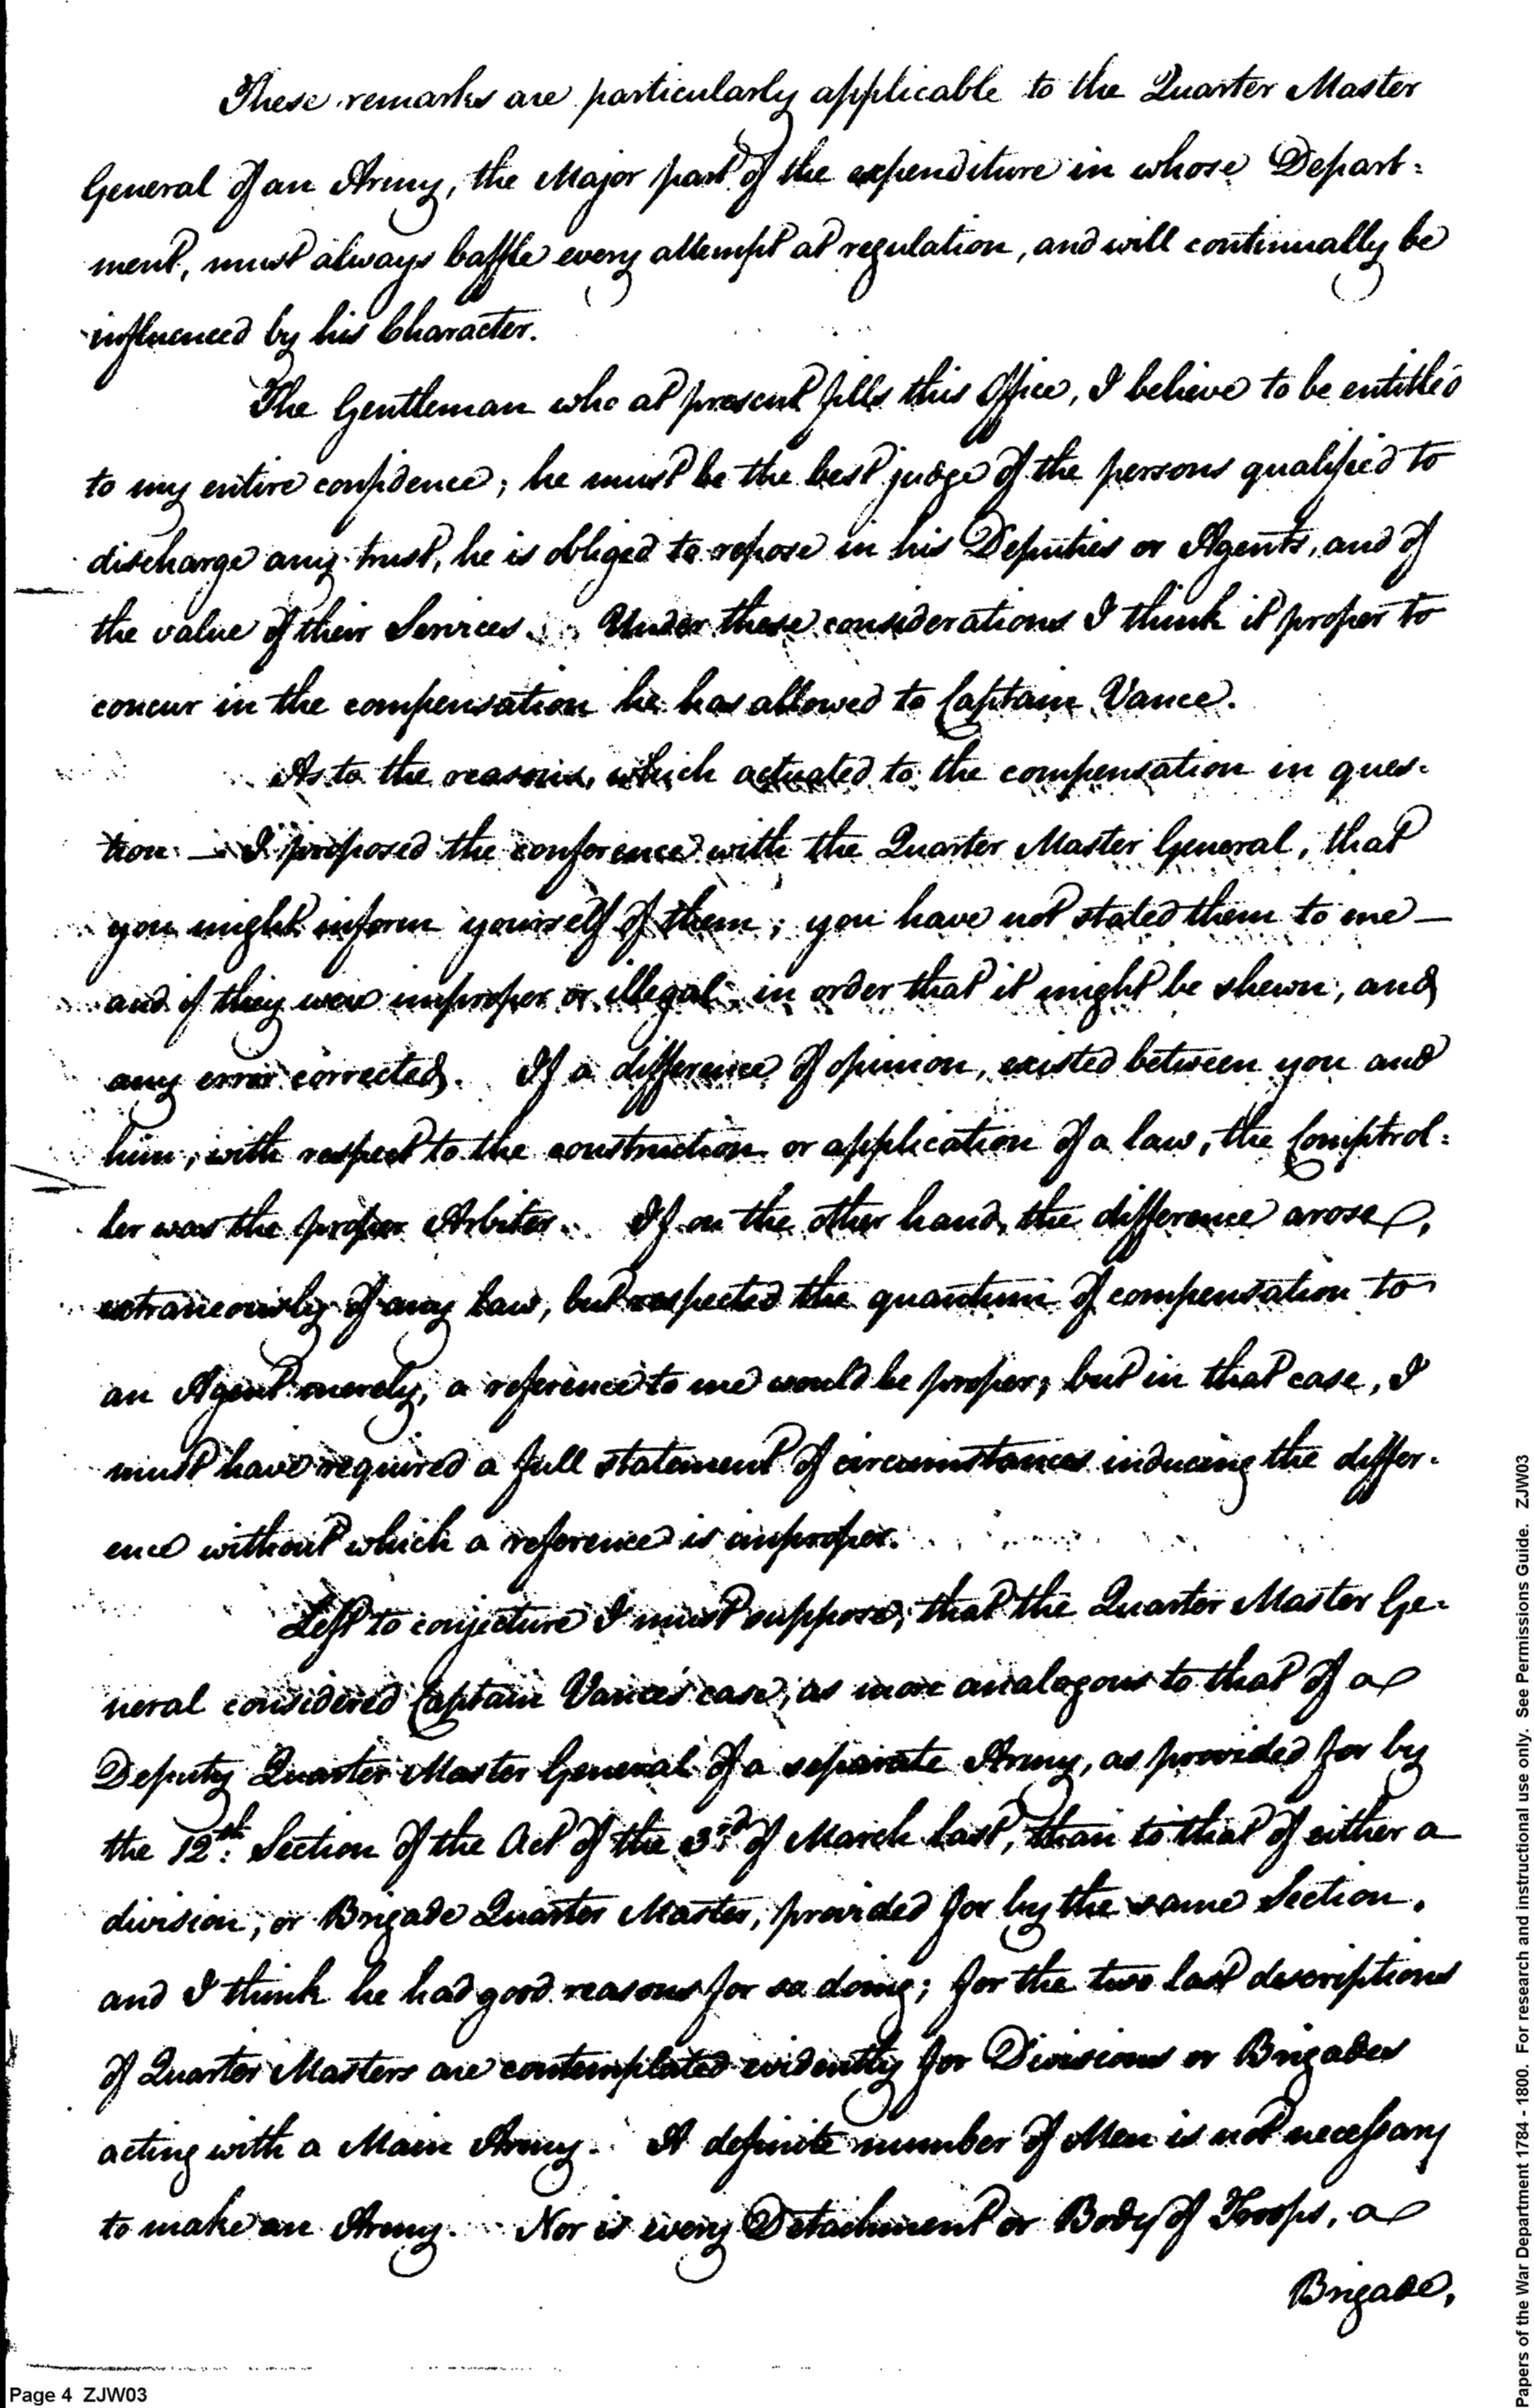 These remarks are particularly applicable to the Quarter Master
General of an Army, the Major part of the expenditure in whose Depart=
ment, must always baffle every attempt at regulation, and will continually be
influenced by his Character.
The Gentleman who at present fills this Office, I believe to be entitled
to my entire confidence; he must be the best judge of the persons qualified to
discharge any trust, he is obliged to repose in his Deputies or Agents, and of
the value of their Services. Under these considerations I think it proper to
concur in the compensation he has allowed to Captain Vance.
As to the reasons, which actuated to the compensation in ques=
tion — I proposed the conference with the Quarter Master General, that
you might inform yourself of them; you have not stated them to me —
and if they were improper or illegal in order that it might be shewn, and
any error corrected. If a difference of opinion, existed between you and
him, with respect to the construction or application of a law, the Comptrol=
ler was the proper Arbiter. If on the other hand, the difference arose,
extraneously of any Law, but respected the quantum of compensation to
an Agent merely, a reference to me would be proper; but in that case, I
must have required a full statement of circumstances inducing the differ=
ence without which a reference is improper.
Left to conjecture I must suppose, that the Quarter Master Ge=
neral considered Captain Vance's case, as more analogous to that of a
Deputy Quarter Master General of a separate Army, as provided for by
the 12th. Section of the Act of the 3rd of March last, than to that of either a
division, or Brigade Quarter Master, provided for by the same Section,
and I think he had good reasons for so doing; for the two last descriptions
of Quarter Masters are contemplated evidently for Divisions or Brigades
acting with a Main Army. A definite number of Men is not necessary
to make an Army. Nor is every Detachment or Body of Troops, a
Brigade,
Page 4 ZJW03
Papers of the War Department 1784 - 1800. For research and instructional use only. See Permissions Guide. ZJW03